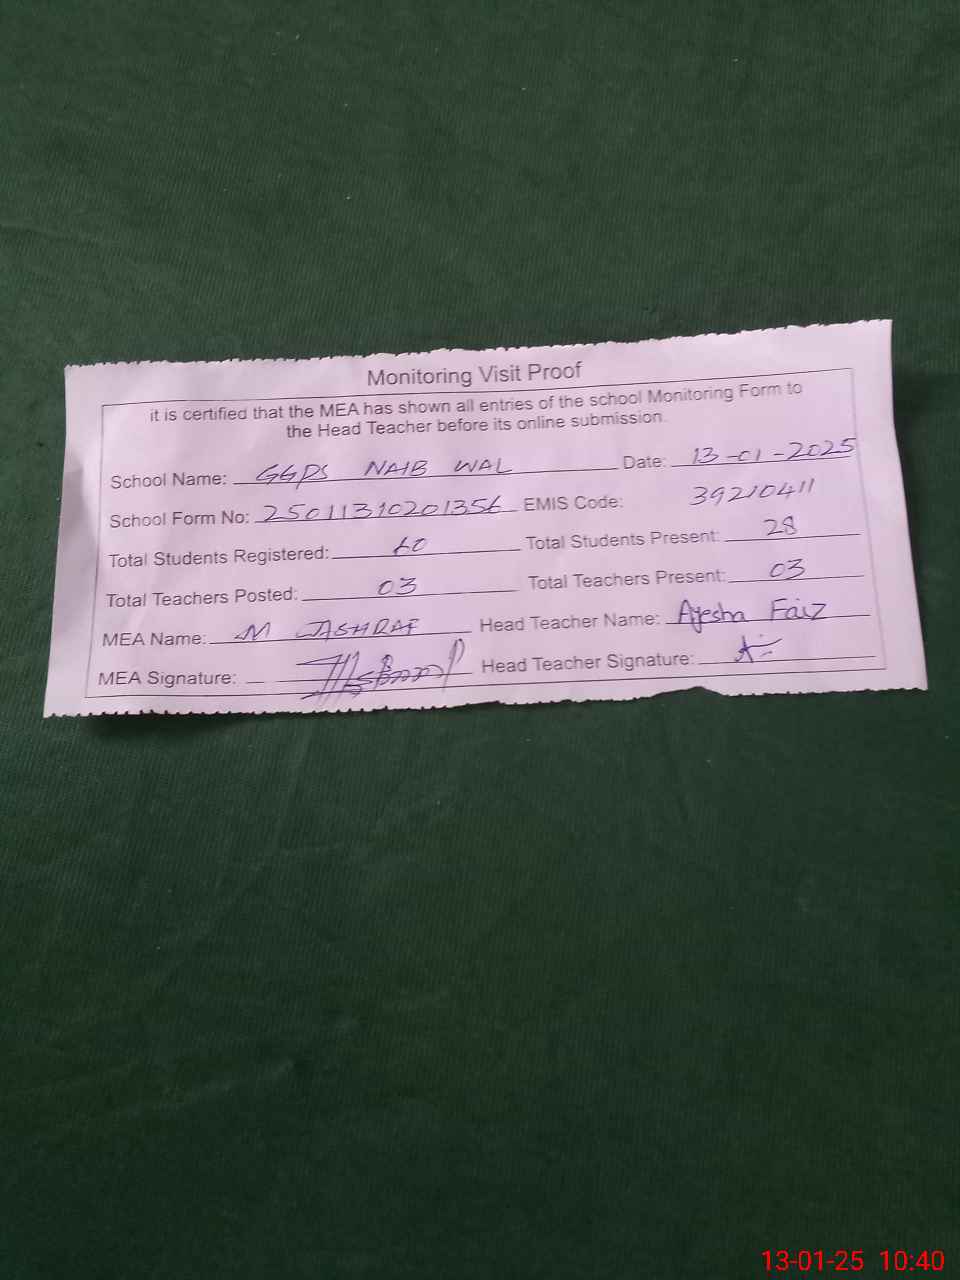 Monitoring Visit Proof
it is certified that the MEA has shown all entries of the school Monitoring Form to
the Head Teacher before its online submission.
School Name: GGPS NAIB WAL Date: 13-01-2025
School Form No: 25011310201356 EMIS Code: 39210411
Total Students Registered: 60 Total Students Present: 28
Total Teachers Posted: 03 Total Teachers Present: 03
MEA Name: M ASHRAF Head Teacher Name: Ayesha Faiz
MEA Signature: Head Teacher Signature:
13-01-25 10:40